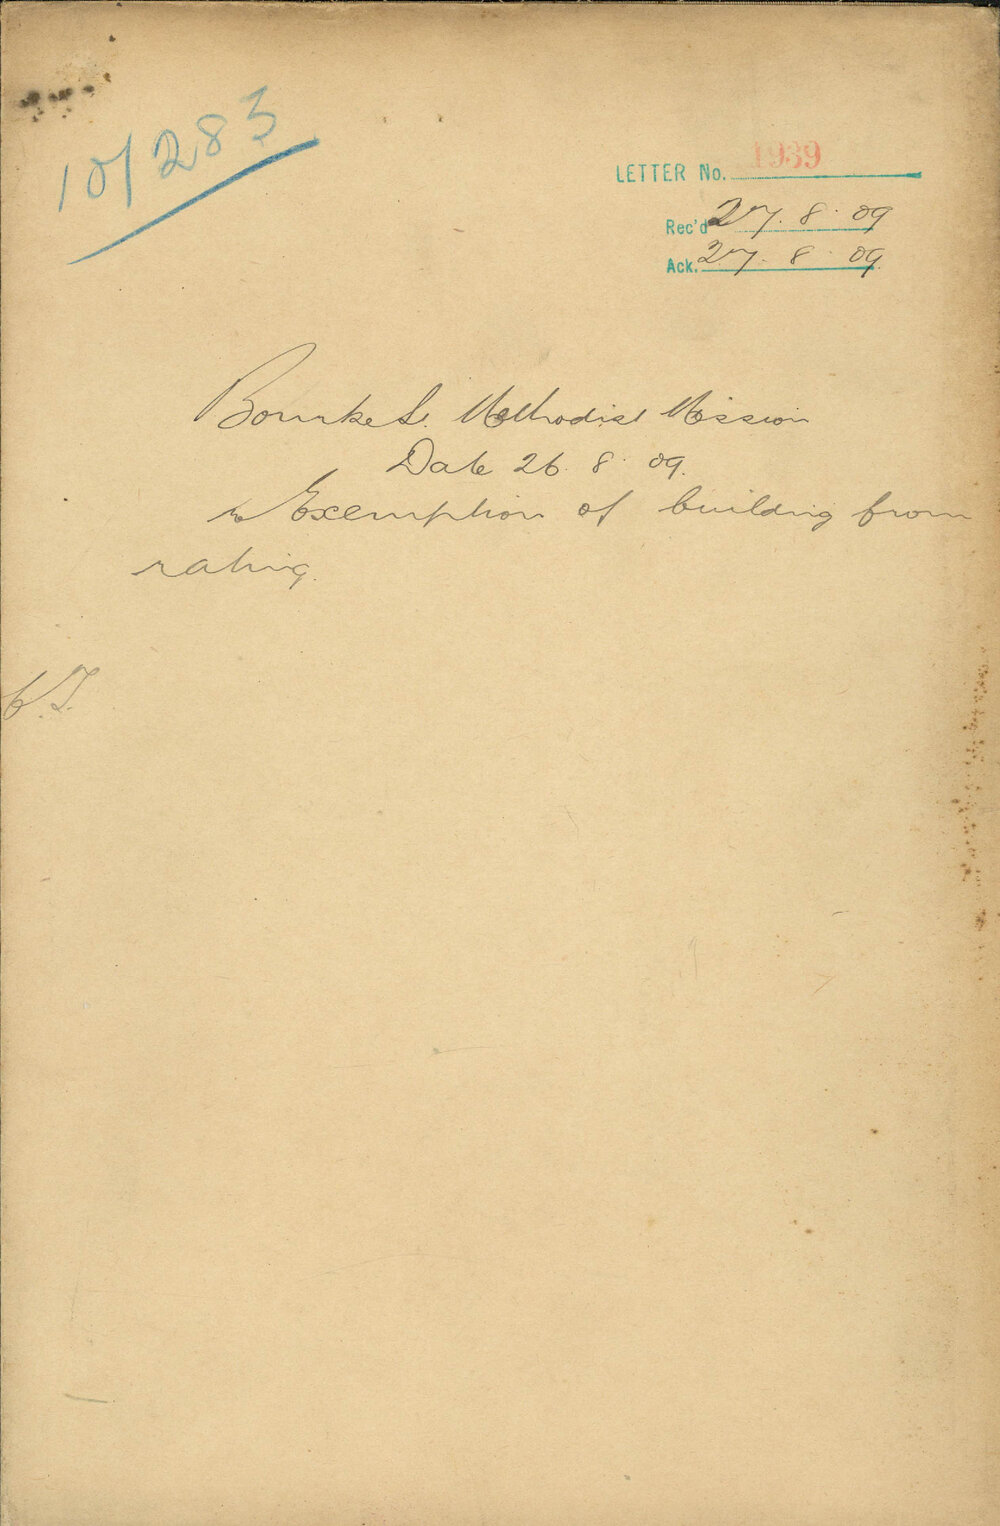 10/283
LETTER No. 1939
Rec'd 27. 8. 09
Ack. 27. 8. 09.
Bourke St. Methodist Mission
Date 26. 8. 09.
re Exemption of building from
rating.